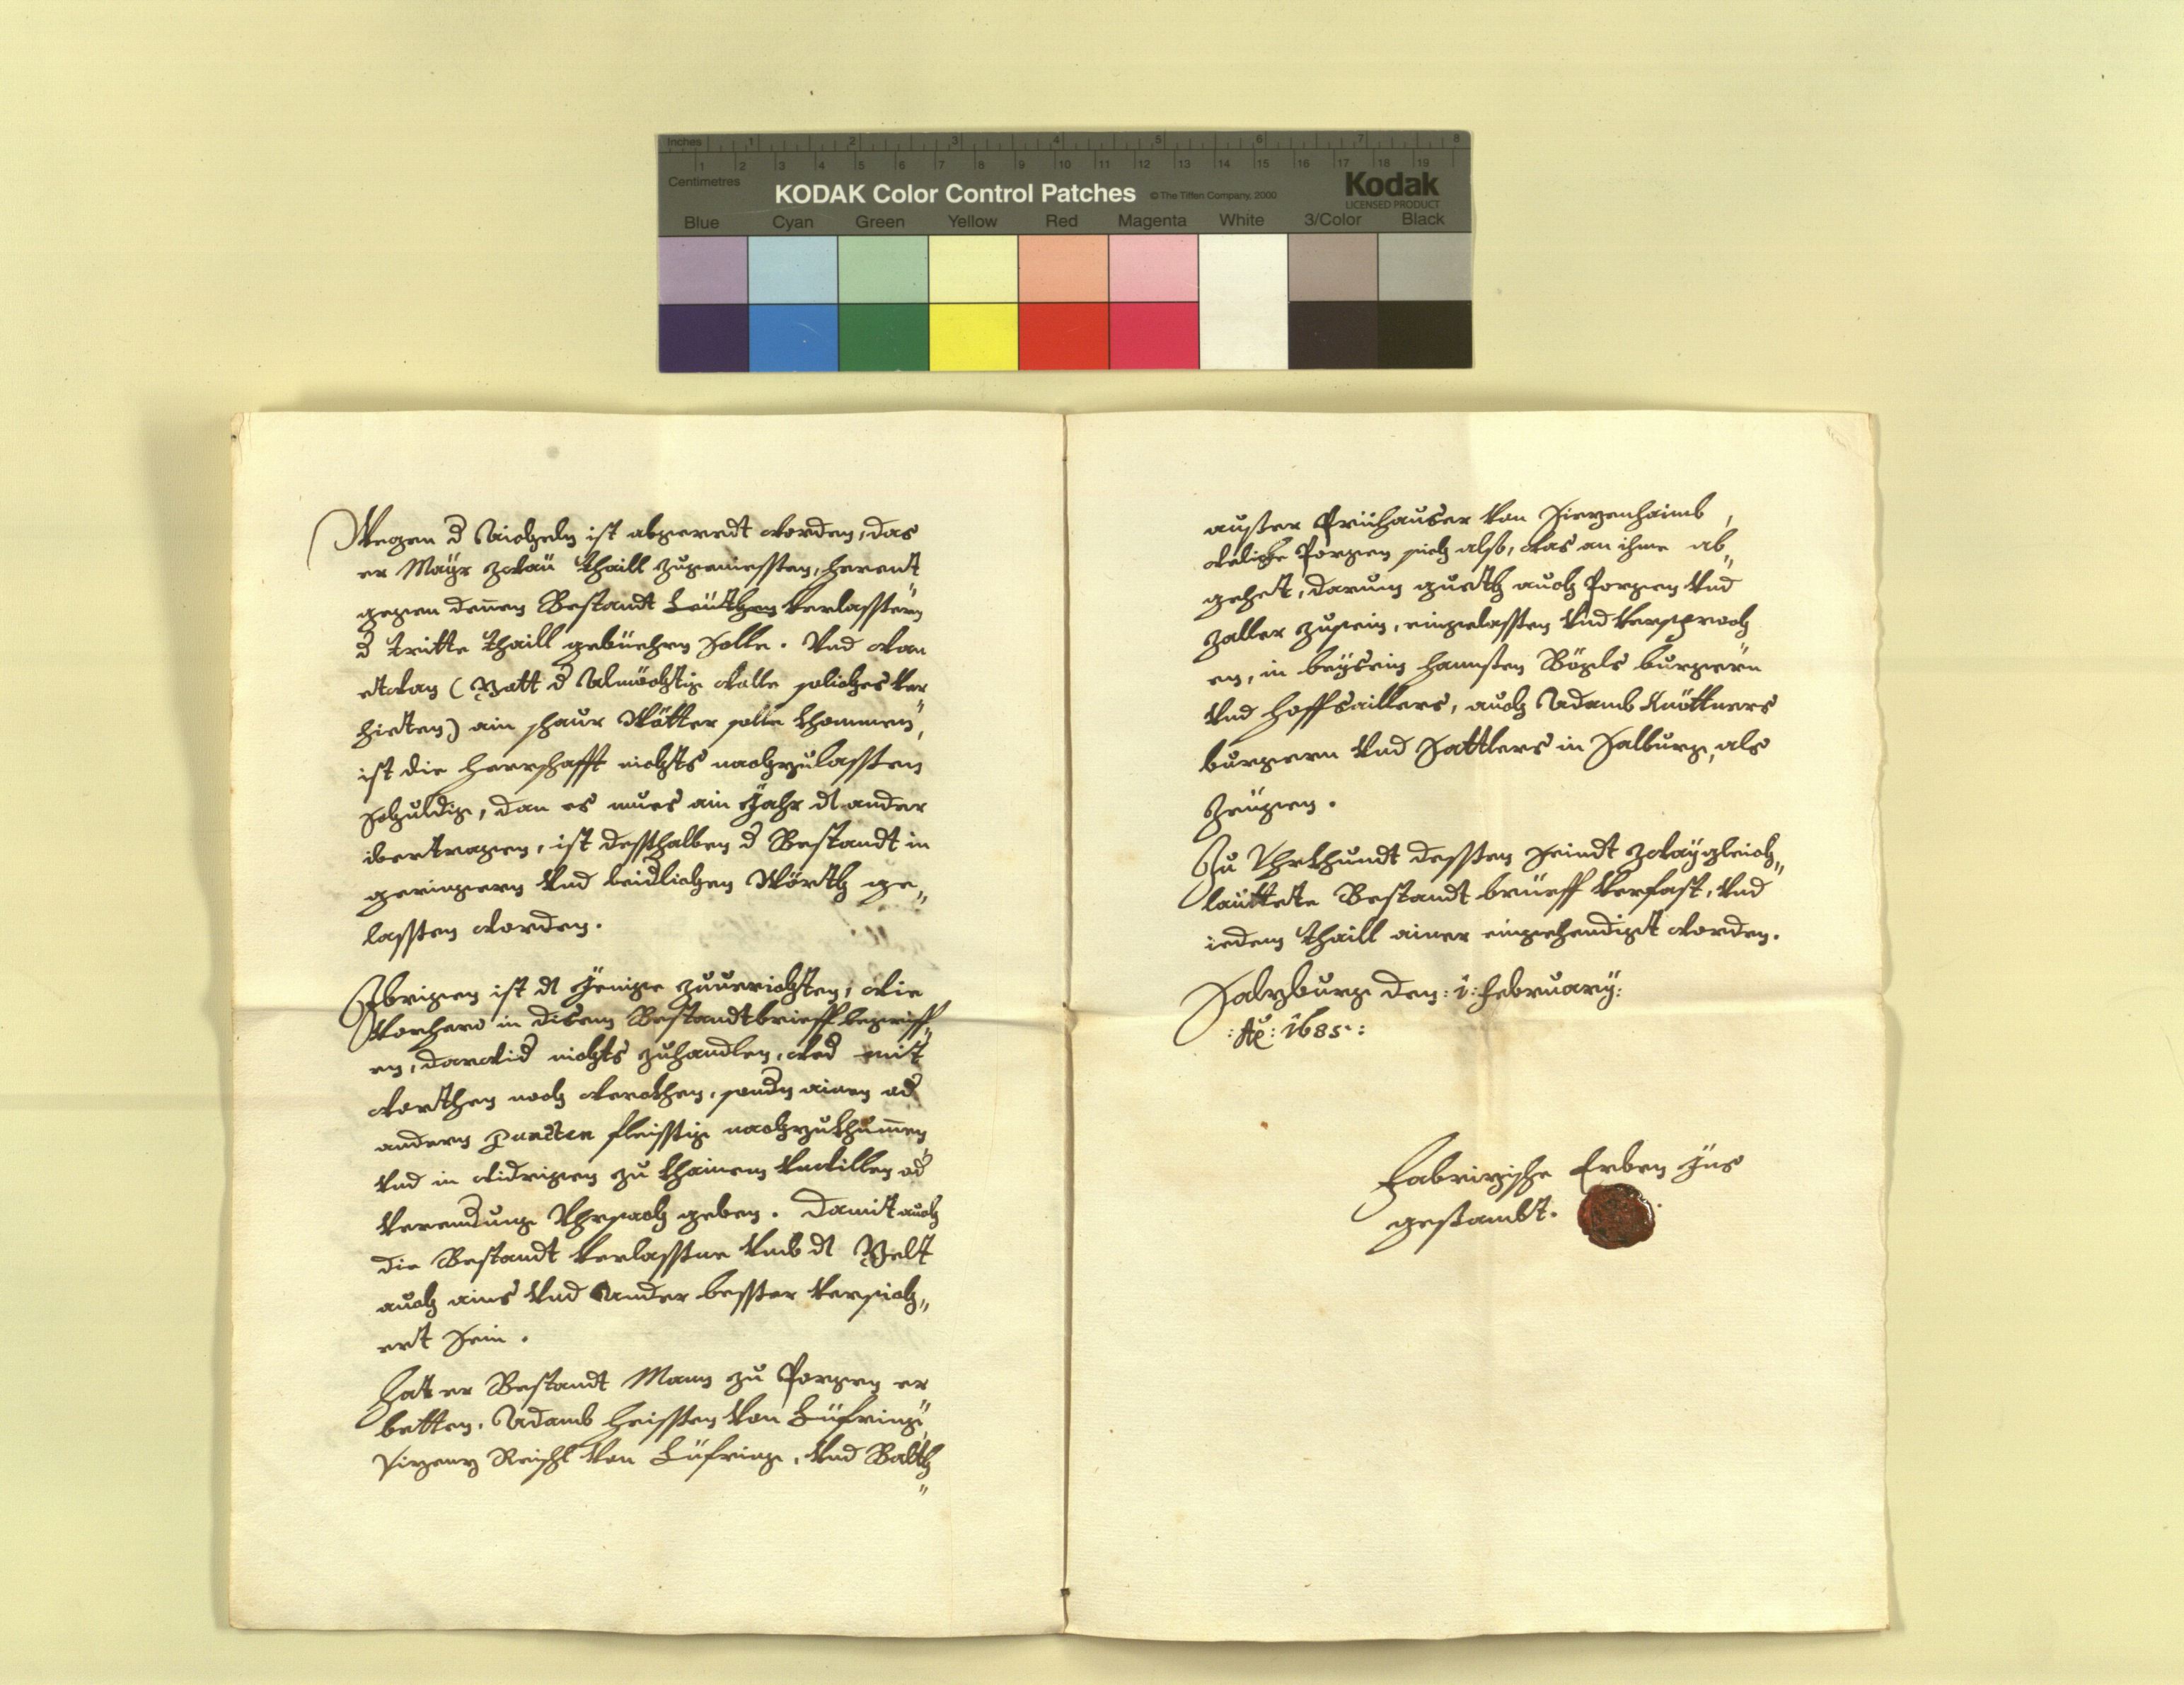 Inches 1 2 3 4 5 6 7 8
1 2 3 4 5 6 7 8 9 10 11 12 13 14 15 16 17 18 19
Centimetres
KODAK Color Control Patches © The Tiffen Company, 2000 Kodak
LICENSED PRODUCT
Blue Cyan Green Yellow Red Magenta White 3/Color Black
Wegen d Aicheln ist abgeredt worden, das
er Mayr zway thaill zugeniessen, herent
gegen denen Bestandt Leüthen verlassern
d tritte thaill gebüehren solle. Vnd wan
etwan (Gott d Almächtig wolle soliches ver
hieten) ain schaur Wötter solte khommen,
ist die Herrschafft nichts nachzulassen
schuldig, dan es mues ain Jahr dz ander
ibertragen, ist dessthalben d Bestandt in
geringern vnd leidlichen Wörth ge„
lassen worden.
Ibrigen ist dz Jenige zuuerichten, wie
vorhero in disem Bestandtbrieff begriff„
en, darwid nichts zuhandlen, wed mit
worthen noch werckhen, sondn ainen od
andern puncten fleissig nachzukhumen
vnd in widrigen zu khainem vnwillen od
verendung Vhrsach geben. Damit auch
die Bestandt verlassne vmb dz Gelt
auch ains vnd ander besser versich„
ert sein.
Hat er Bestandt Mann zu Porgen er
betten, Adamb Heissen von Lüfring,
Vizenz Reischl von Lüfring, vnd Balth„
ausser von
weliche Porgen sich alss, was an ihme ab„
gehet, darum gueth auch Porgen vnd
zaller zusein, eingelassen vnd versproch
en, in beysein Hannsen Bögels burgern
vnd Hoffsaillers, auch Adamb Knöttners
burgern vnd Sattlers in Salburg, als
Zeügen.
Zu Vhrkhundt dessen seindt zwaygleich„
lauttete Bestandt brüeff verfast, vnd
iedem thaill ainer eingehendigt worden.
Salzburg den: 1: February:
:Ao: 1685:
Fabrizische Erben Ins
gesambt.